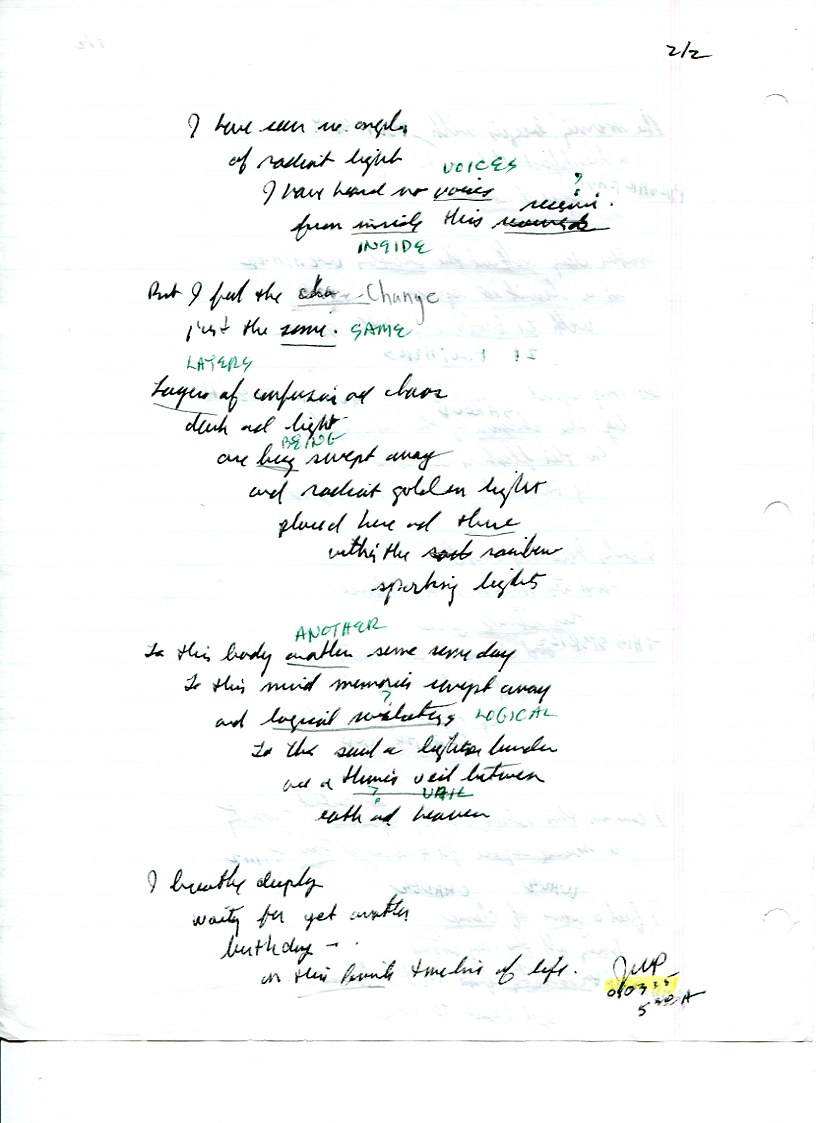 2/2
I have seen no angles
of radiant light
VOICES
I have heard no voices
?
from inside this
INSIDE
But I feel the Change
just the same. SAME
LAYERS
Layers of confusion ad chaos
dark ad light
BEING
are being swept away
and radiant golden light
placed here ad there
within the rainbow
sparking lights
ANOTHER
To this body another same same day
To this mind memories swept away
?
ad logical LOGICAL
To the soul a lighter burden
ad a veil between
? VAIL
earth ad heaven
I breathe deeply
waiting for yet another
birthday -
on this timeline of life. JMP
5 30 A